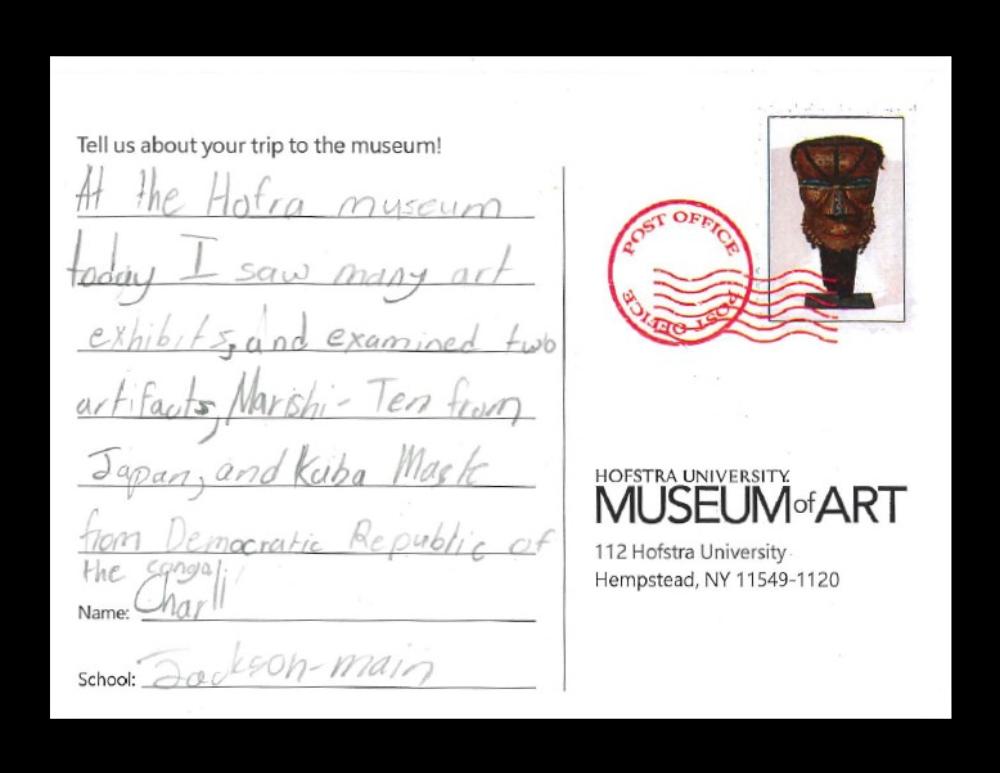 Tell us about your trip to the museum!
At the Hofra museum
today I saw many art
exhibits, and examined two
artifacts, Marishi-Ten from
Japan, and Kuba Mask
from Democratic Republic of
the conga!
Name: Charli
School: Jackson-main
POST OFFICE
POST OFFICE
HOFSTRA UNIVERSITY
MUSEUM of ART
112 Hofstra University
Hempstead, NY 11549-1120